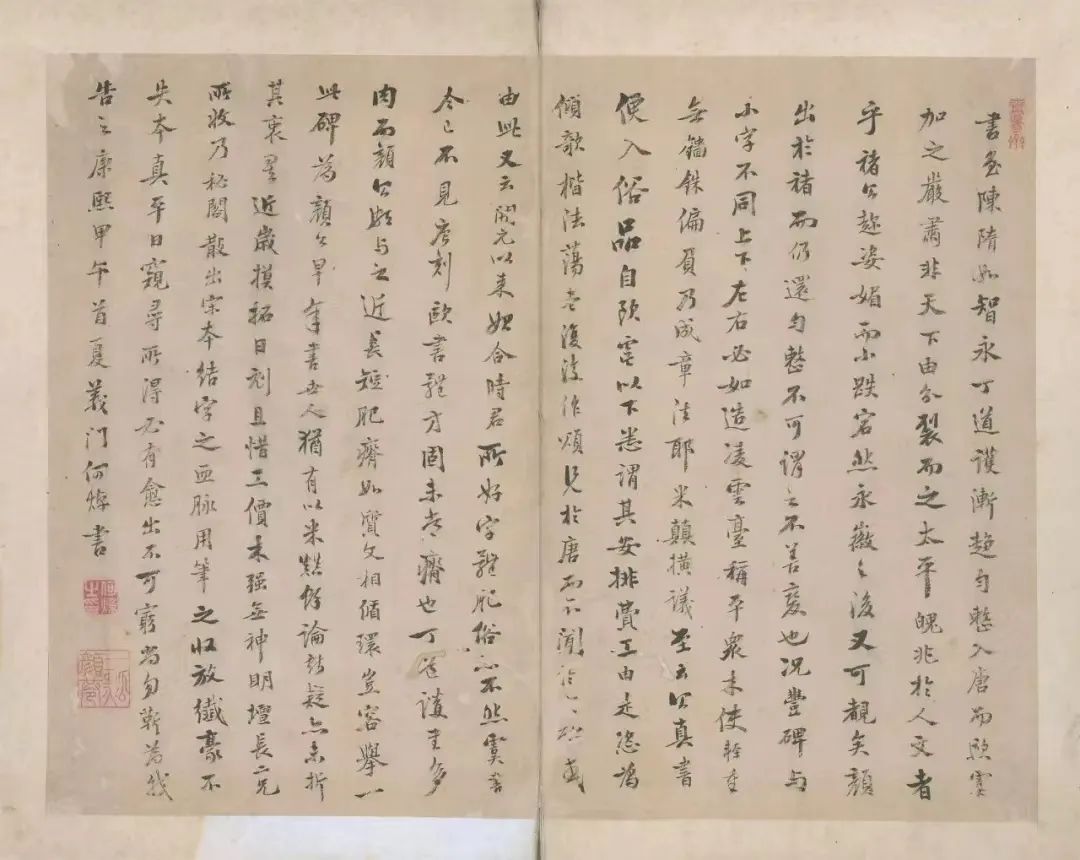 書至陳隋如智永丁道護漸趨勻整入唐而歐虞
加之嚴肅非天下由分裂而之太平魄兆於人文者
乎褚公趣姿媚而小跌宕然永徽之後又可觀矣顏
出於褚而仍還勻整不可謂之不善變也况豐碑与
小字不同上下左右必如造凌雲臺稱平衆木使輕重
無錙銖偏負乃成章法耶米顛橫議至云公真書
便入俗品自歐虞以下悉謂其安排費工由是恣為
傾欹楷法蕩盡復後作頌見於唐而不聞
由此又云開元以来始合時君所好字雖肥俗亦不然虞書
今已不見唐刻歐書雖方固未嘗瘠也丁道護書多
肉而顏公頗与之近長短肥瘠如質文相循環豈容舉一
此碑為顏公早年書世人猶有以米黠餘論致疑亦未折
其衷近歲摸拓日刓且惜工價木强無神明壇長二兄
所收乃秘閣散出宋本結字之血脉用筆之收放纖豪不
失本真平日窺尋所得必有愈出不可窮尚勿靳為我
告之康熙甲午首夏義門何焯書